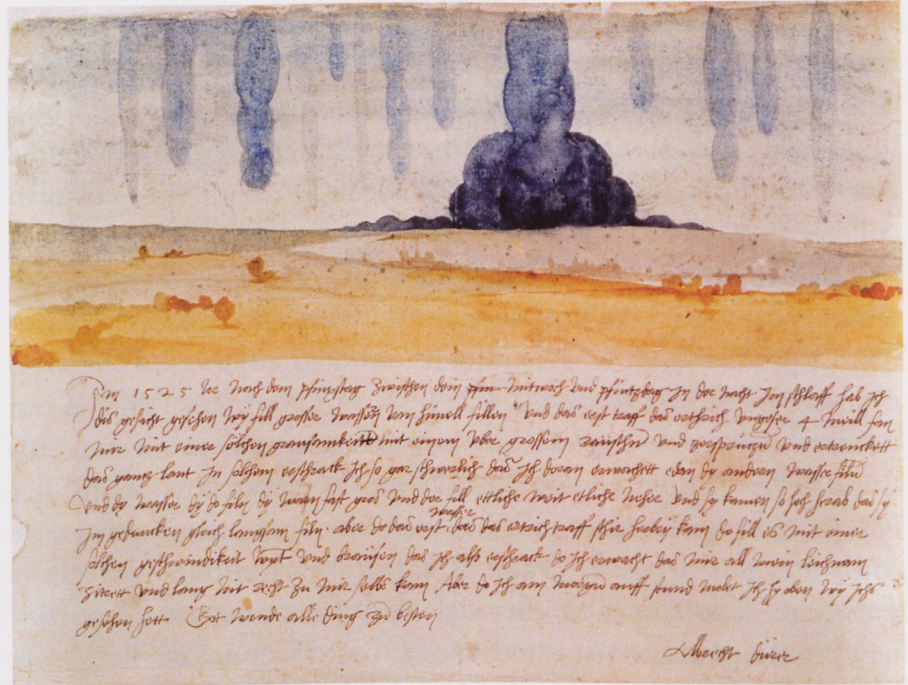 Im 1525 Jor noch dem pfinxstag zwischen dem pfin mitwoch und pfintzdag in der nacht im schlaff hab ich
dis gesicht gesehen wy fill grosser wassern vom himell fillen Und das erst traff das erthrich ungefer 4 meill fan
mir mit einer solchen grausamkeitt mit einem uber grossem raüschn und zersprützn und ertrenckett
das gantz lant In solchem erschrack ich so gar schwerlich das ich doran erwachett edan dy andern wasser filn
Und dy wasser dy do filn dy warn fast gros und der fill ettliche weit etliche neher und sy kamen so hoch herab das sy
im gedancken gleich langsam filn aber do das erst wasser das das ertrich traff schir herbey kam do fill es mit einer
solchen geschwindikeit wynt und braüsen das ich also erschrack do ich erwacht das mir all mein leichnam
zitrett und lang nit recht zu mir selbs kam Aber do ich am morgn auff stund malet ich hy oben wy ichs
gesehen hett Got wende alle ding zu besten
Albrecht dürer